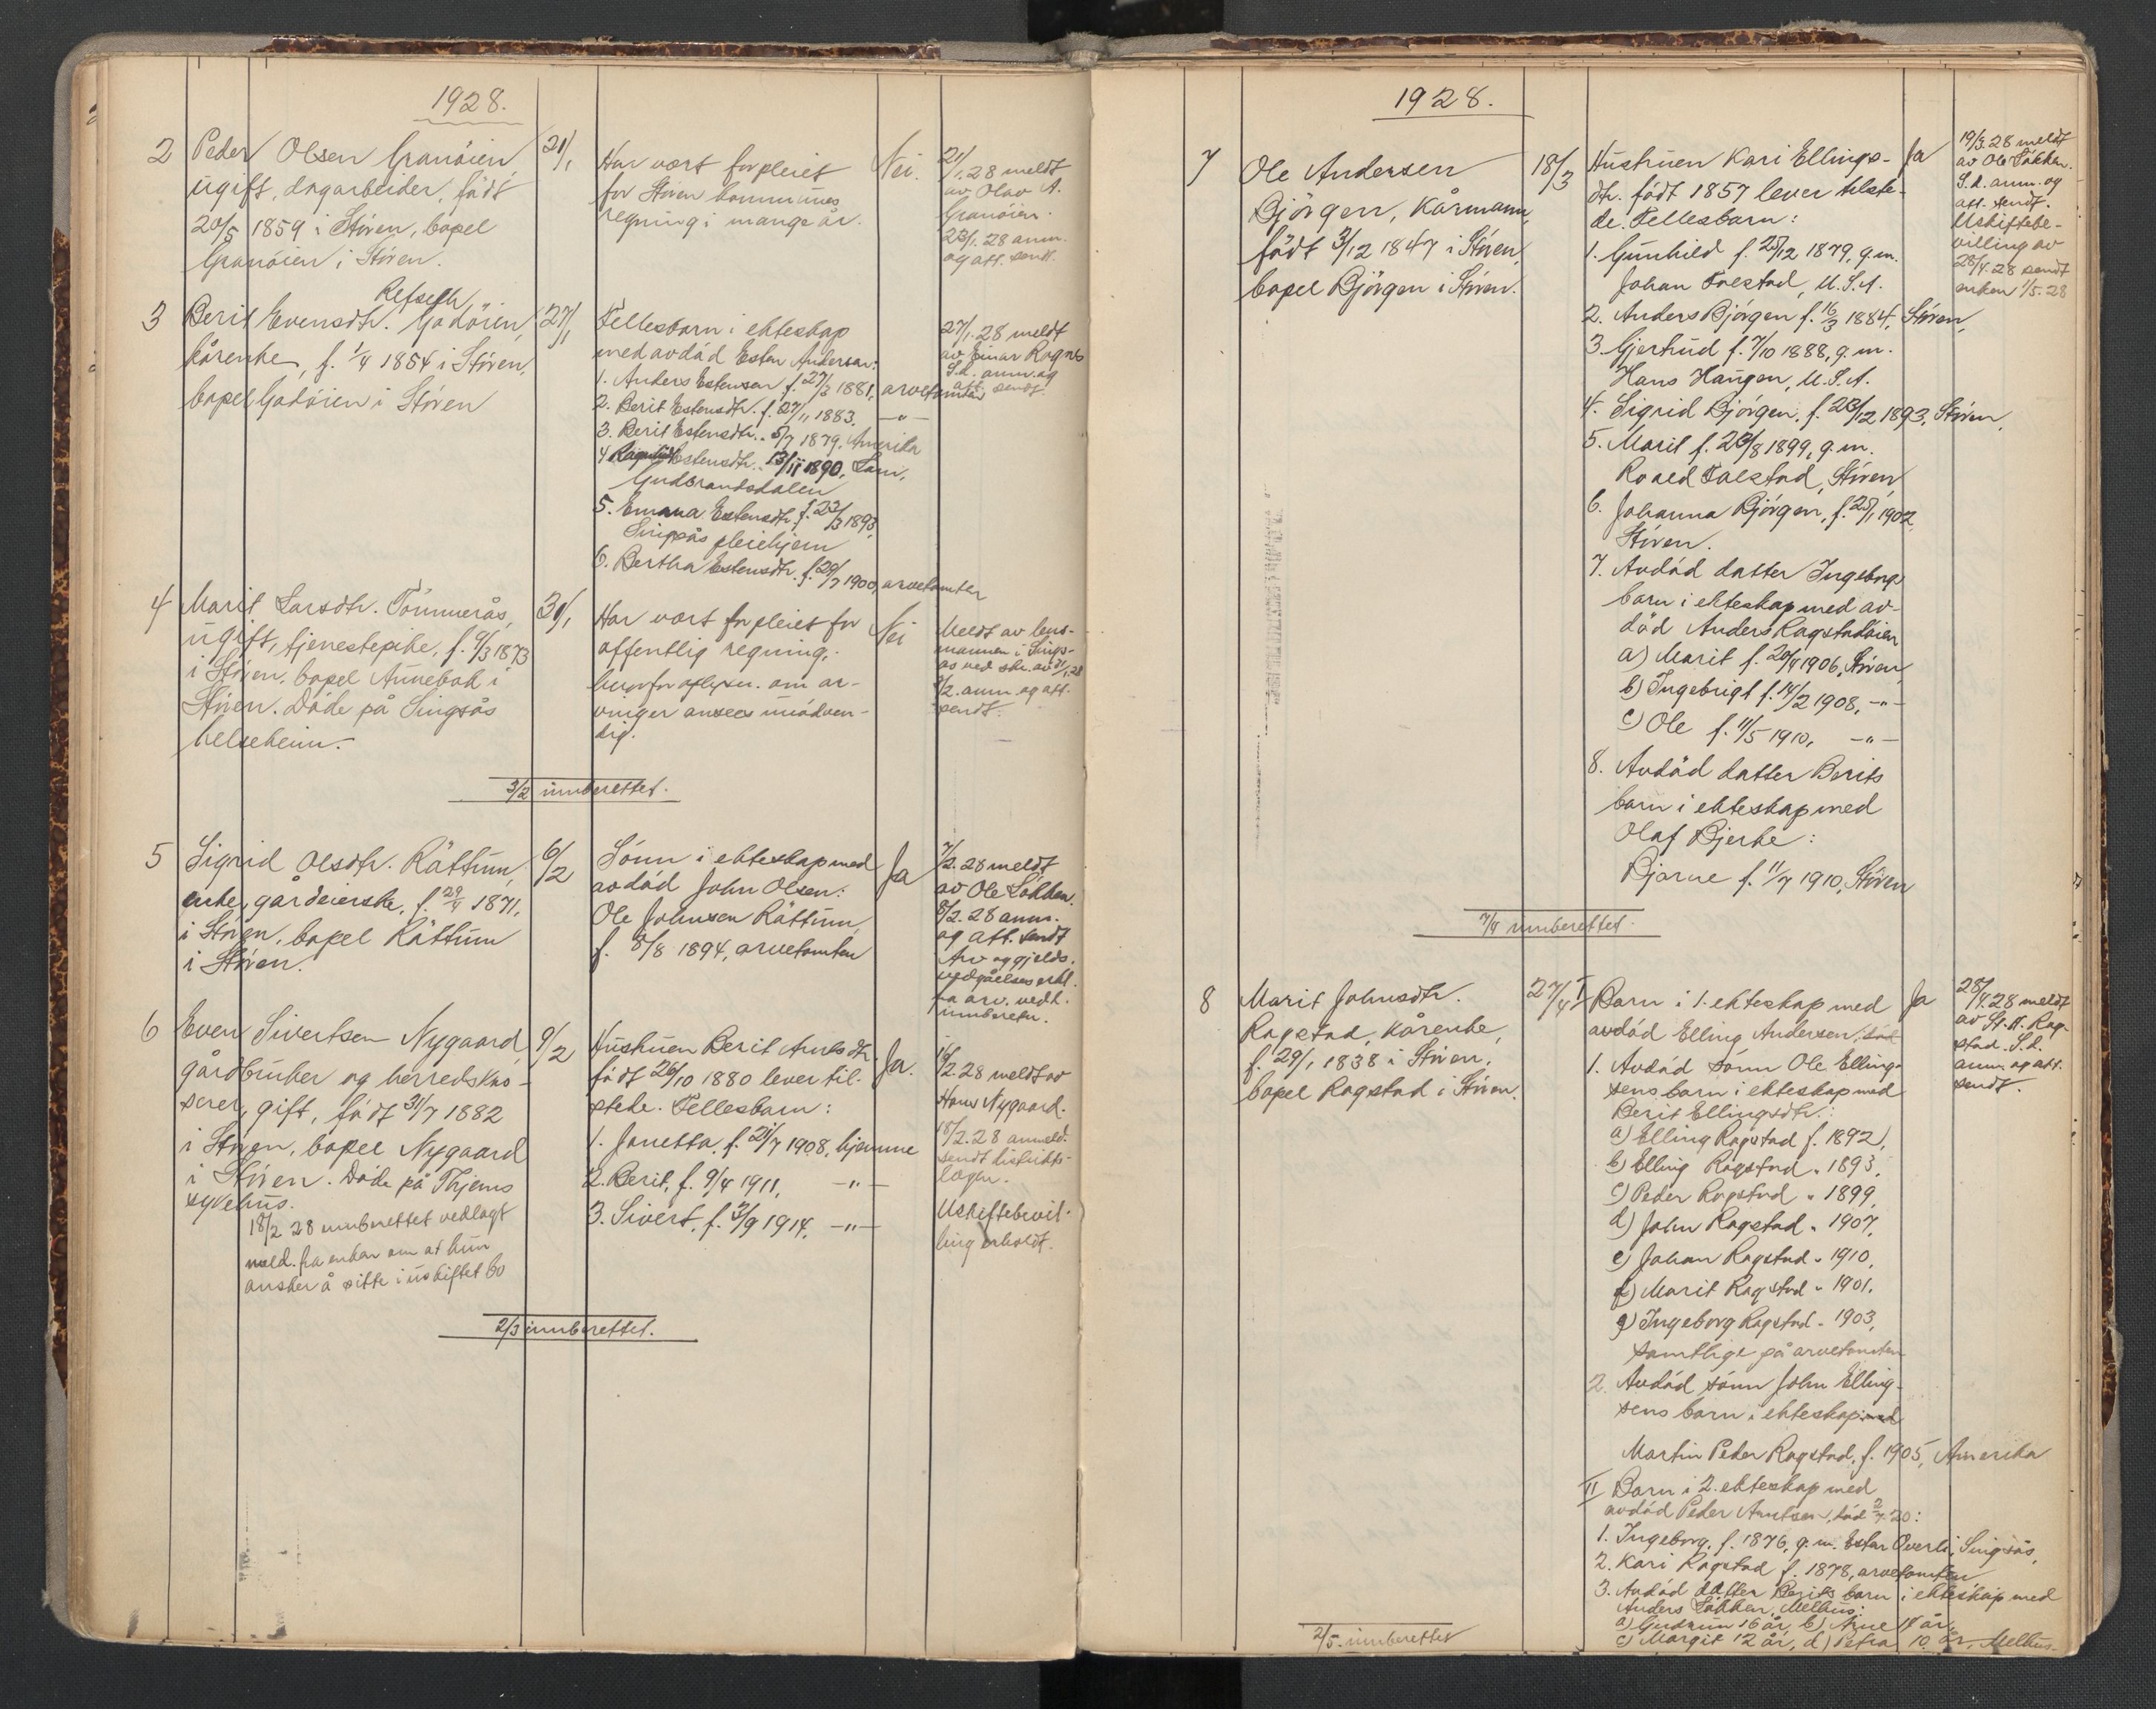 1928.
2 Peder Olsen Granöien
ugift, dagarbeider, født
20/5 1859 i Stören, bopel
Granöien i Stören.
21/1
Har vært forpleiet
for Stören kommunes
regning i mange år.
Nei.
21/1.28 meldt
av Olav A.
Granöien.
23/1.28 anm.
og att. sendt.
Refseth,
3 Berit Evensdtr. Gadöien,
kårenke, f. 1/4 1854 i Stören,
bopel Gadöien i Stören
27/1
Fellesbarn i ekteskap
med avdöd Esten Andersen:
1. Anders Estensen f. 27/3 1881, arvetomten
2. Berit Estensdtr. f. 27/11 1883. -"-
3. Berit Estensdtr. " 5/7 1879, Amerika
4 Ragnhild Estensdtr. " 13/11 1890, Lom,
Gudbrandsdalen
5. Emma Estensdtr. f. 23/3 1893,
Singsås pleiehjem
6. Bertha Estensdtr. f. 29/7 1900, arvetomten
27/1.28 meldt
av Einar Rognes
S.d. anm. og
att. sendt.
4 Marit Larsdtr. Tömmerås,
ugift, tjenestepike, f. 6/3 1873
i Stören, bopel Aunebak i
Stören. Döde på Singsås
helseheim.
30/1
Har vært forpleiet for
offentlig regning,
hvorfor oplysn. om ar-
vinger ansees unödven-
dig.
Nei
Meldt av lens-
mannen i Sings-
ås ved skr. av 31/1.28
3/2. anm. og att.
sendt.
3/2 innberettet.
5 Sigrid Olsdtr. Rättum,
enke, gårdeierske, f. 29/4 1871,
i Stören, bopel Rättum
i Stören.
6/2
Sönn i ekteskap med
avdöd John Olsen:
Ole Johnsen Rättum,
f. 8/8 1894, arvetomten
Ja
7/2.28 meldt
av Ole Løkken.
8/2.28 anm.
og att. sendt
Arv og gjelds-
vedgåelseserkl.
fra arv. vedl.
innberetn.
6 Even Sivertsen Nygaard,
gårdbruker og herredskas-
serer, gift, födt 31/7 1882
i Stören, bopel Nygaard
i Stören. Döde på Thjems
sykehus.
18/2 28 innberettet vedlagt
meld. fra enken om at hun
önsker å sitte i uskiftet bo
9/2
Hustruen Berit Arntsdtr.
födt 26/10 1880 lever til-
stede. Fellesbarn:
1. Janetta, f. 21/7 1908, hjemme
2. Berit, f. 9/4 1911, -"-
3. Sivert, f. 3/9 1914, -"-
Ja.
18/2.28 meldt av
Hans Nygaard.
18/2.28 anmeld.
sendt distrikts-
legen.
Uskiftebevil-
ling erholdt.
2/3 innberettet.
1928.
7 Ole Andersen
Björgen, kårmann,
födt 3/12 1847 i Stören,
bopel Björgen i Stören.
18/3
Hustruen Kari Ellings-
dtr. födt 1857 lever tilste-
de. Fellesbarn:
1. Gunhild f. 25/12 1879, g.m.
Johan Folstad, U.S.A.
2. Anders Björgen f. 16/3 1884, Stören,
3. Gjertrud f. 7/10 1888, g.m.
Hans Haugen, U.S.A.
4. Sigrid Björgen, f. 23/12 1893, Stören,
5. Marit f. 23/8 1899, g.m.
Roald Folstad, Stören,
6. Johanna Björgen, f. 25/1 1902,
Stören.
7. Avdöd datter Ingeborgs
barn i ekteskap med av-
död Anders Rogstadöien
a) Marit f. 20/4 1906, Stören,
b) Ingebrigt f. 14/2 1908, -"-
c) Ole f. 11/5 1910, -"-
8. Avdöd datter Berits
barn i ekteskap med
Olaf Bjerke:
Bjarne f. 11/7 1910, Stören
Ja
19/3.28 meldt
av Ole Løkken.
S.d. anm. og
att. sendt.
Uskiftebe-
villing av
28/4.28 sendt
enken 1/5.28
7/4 innberettet.
8 Marit Johnsdtr.
Rogstad, kårenke,
f. 29/1 1838 i Stören,
bopel Rogstad i Stören.
27/4
I Barn i 1. ekteskap med
avdöd Elling Andersen, död
1. Avdöd sönn Ole Elling-
sens barn i ekteskap med
Berit Ellingsdtr.:
a) Elling Rogstad f. 1892,
b) Elling Rogstad " 1893,
c) Peder Rogstad " 1899,
d) John Rogstad " 1907,
e) Johan Rogstad " 1910,
f) Marit Rogstad " 1901,
g) Ingeborg Rogstad " 1903,
samtlige på arvetomten
2. Avdöd sönn John Elling-
sens barn i ekteskap med
Martin Peder Rogstad, f. 1905, Amerika
II Barn i 2. ekteskap med
avdöd Peder Arntsen, död 2/4 20:
1. Ingeborg, f. 1876, g.m. Estar Overli, Singsås,
2. Kari Rogstad f. 1878, arvetomten
3. Avdöd datter Berits barn i ekteskap med
Anders Løkken, Melhus:
a) Gudrun 16 år, b) Arne 14 år,
c) Margit 12 år, d) Petra 10 år, Melhus.
Ja
28/4.28 meldt
av St. A. Rog-
stad. S.d.
anm. og att.
sendt.
2/5. innberettet